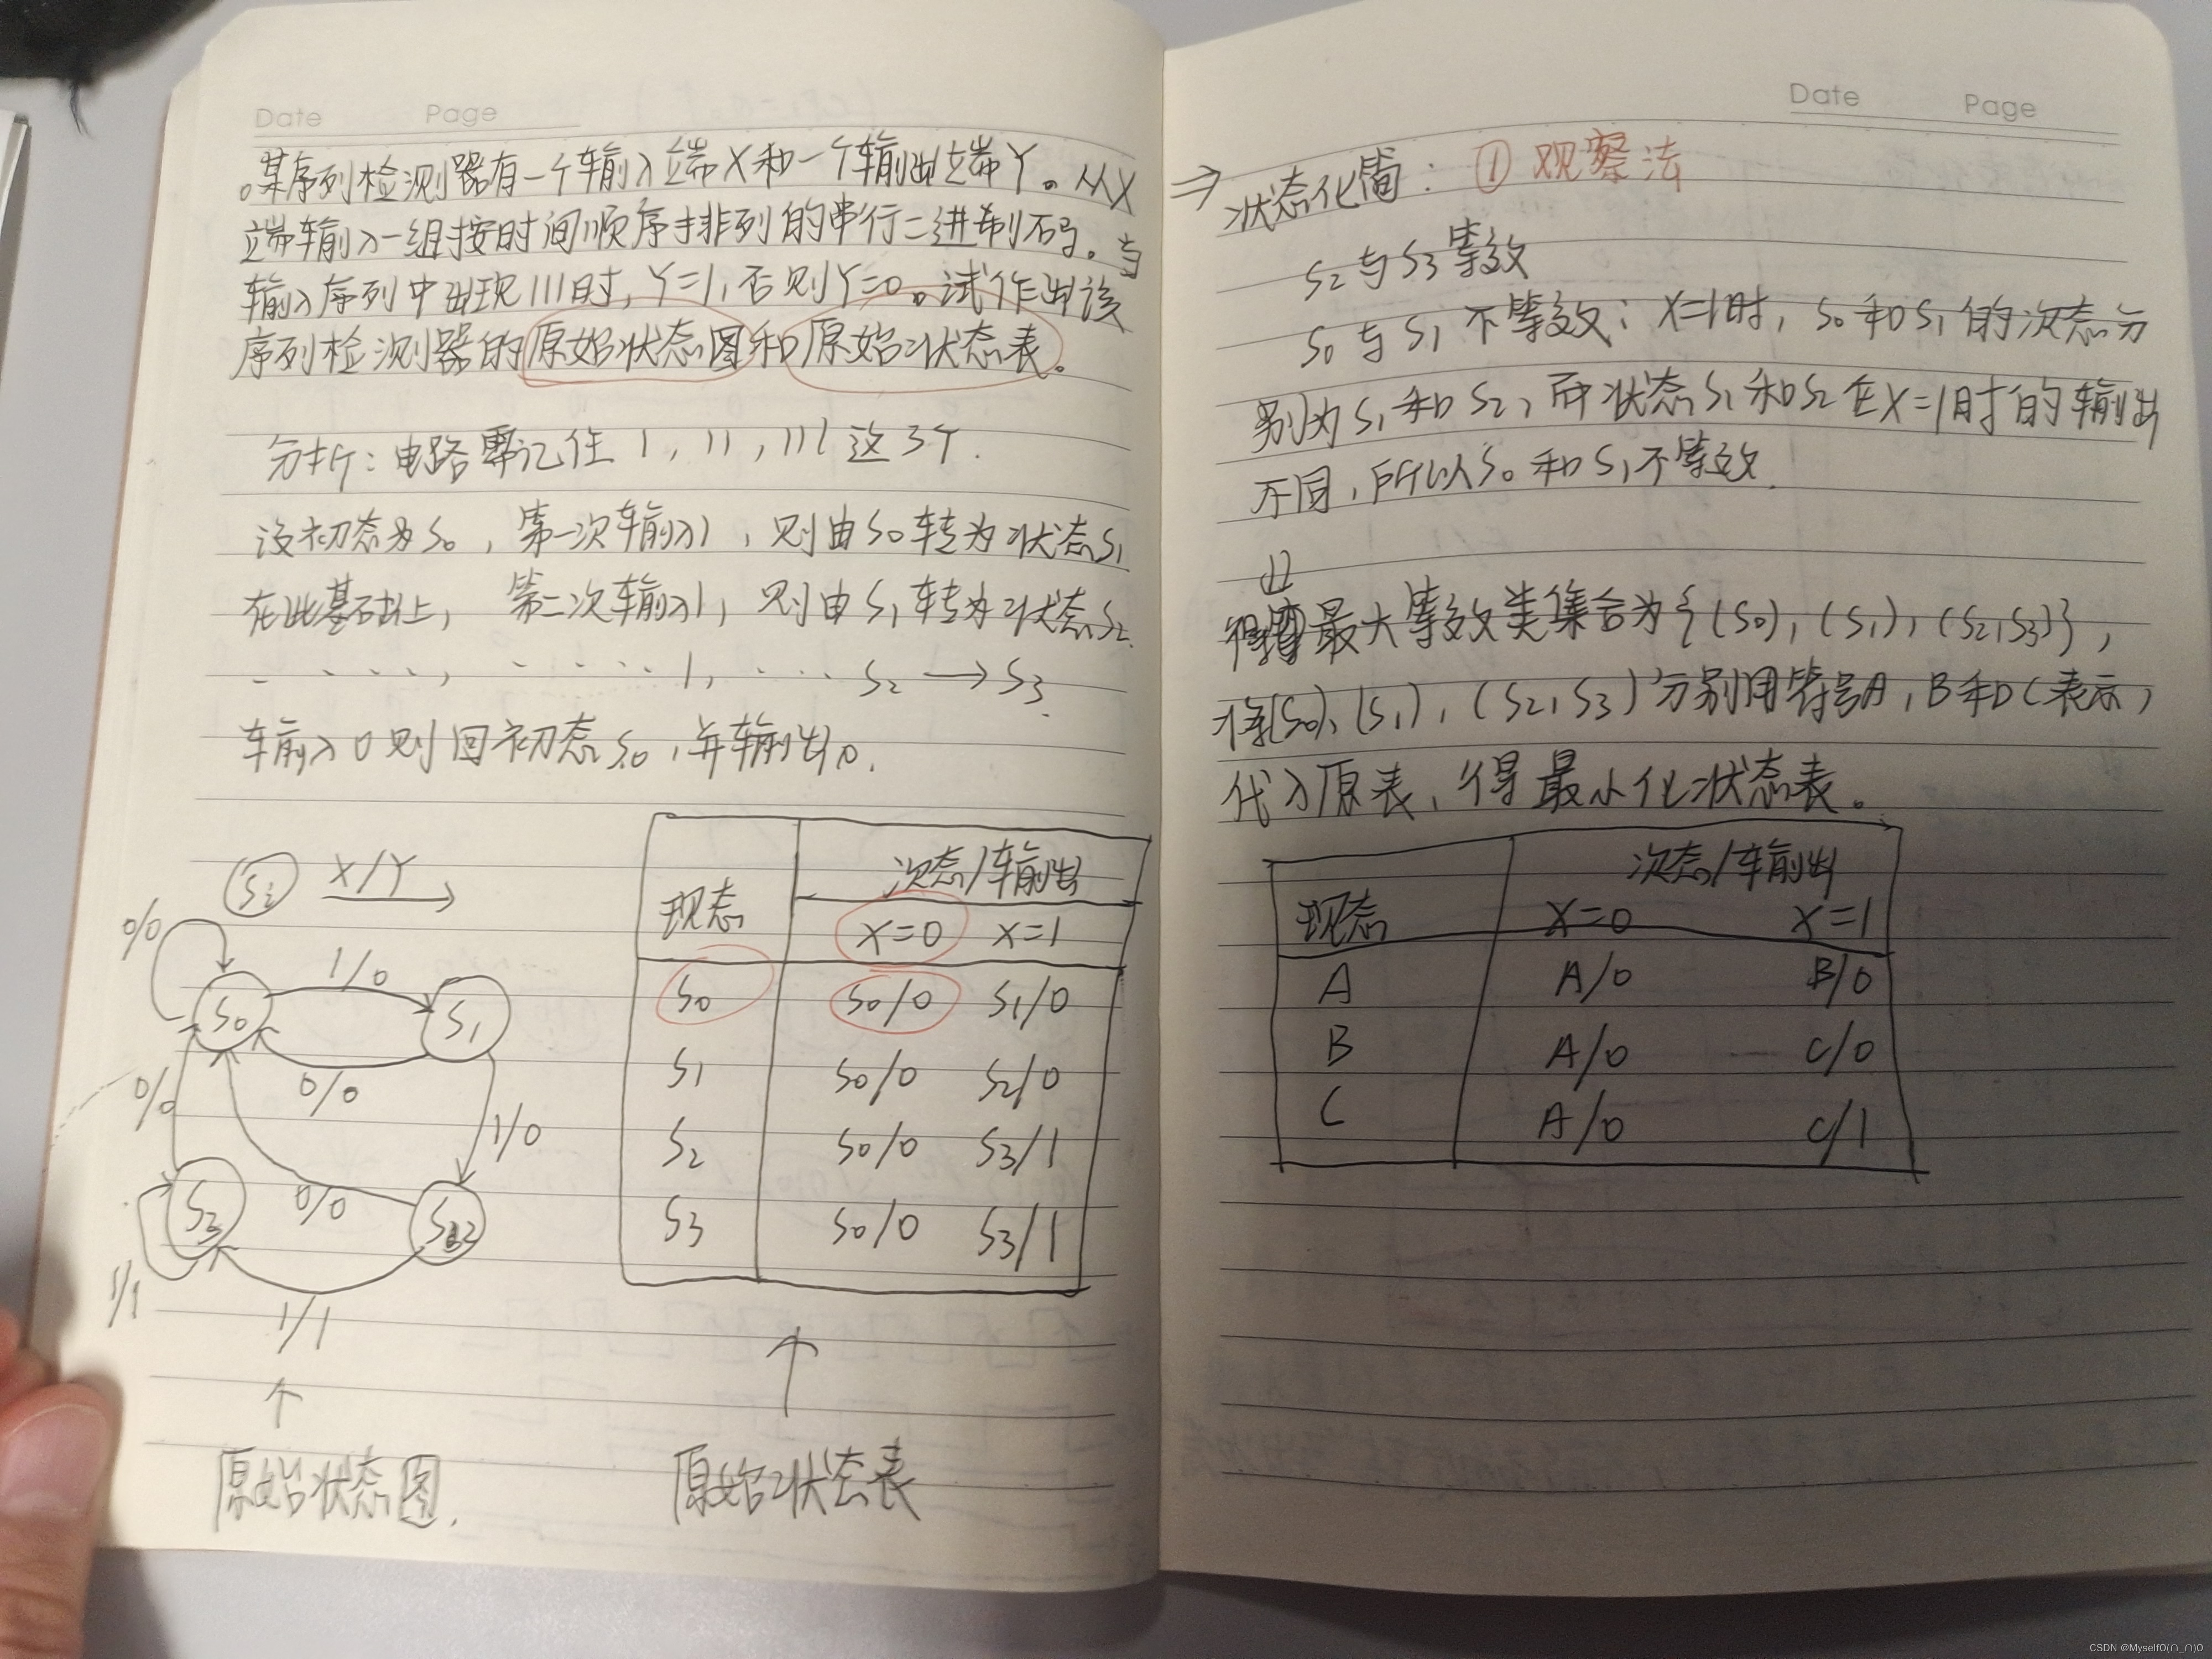 Date Page
。某序列检测器有一个输入端X和一个输出端Y。从X
端输入一组按时间顺序排列的串行二进制码。当
输入序列中出现111时，Y=1，否则Y=0。试作出该
序列检测器的原始状态图和原始状态表。
分析：电路需记住 1，11，111 这3个.
设初态为S0，第一次输入1，则由S0转为状态S1
在此基础上，第二次输入1，则由S1转为状态S2
· · · · ·， · · · · · 1， · · · · S2 → S3.
输入0则回初态S0，并输出0.
Si X/Y
0/0
1/0
S0 S1
0/0
0/0
1/0
S3 0/0 S2
1/1
1/1
↑
原始状态图.
现态 次态/输出
X=0 X=1
S0 S0/0 S1/0
S1 S0/0 S2/0
S2 S0/0 S3/1
S3 S0/0 S3/1
↑
原始状态表
Date Page
⇒ 状态化简：① 观察法
S2与S3等效
S0与S1不等效：X=1时，S0和S1的次态分
别为S1和S2，而状态S1和S2在X=1时的输出
不同，所以S0和S1不等效.
⇓
得 最大等效类集合为{(S0)，(S1)，(S2,S3)}，
将(S0)，(S1)，(S2,S3)分别用符号A，B和C表示，
代入原表，得最小化状态表。
现态 次态/输出
X=0 X=1
A A/0 B/0
B A/0 C/0
C A/0 C/1
CSDN @MyselfO(∩_∩)O